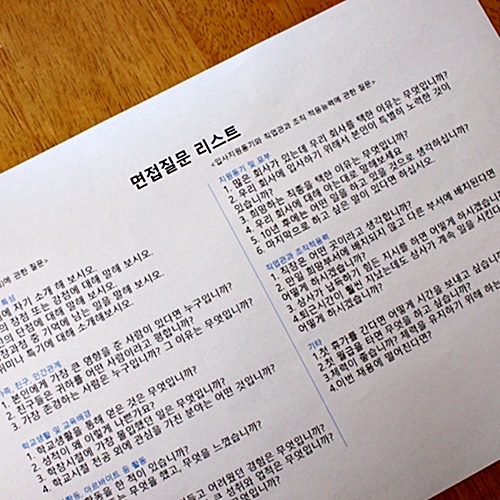 면접질문 리스트
에 관한 질문>
특성
에 자기 소개 해 보시오.
의 장점 또는 강점에 대해 말해 보시오.
의 단점에 대해 말해 보시오.
장과정 중 기억에 남는 일을 말해 보시오.
취미나 특기에 대해 소개해보시오.
가족, 친구, 인간관계
1. 본인에게 가장 큰 영향을 준 사람이 있다면 누구입니까?
2. 친구들은 귀하를 어떤 사람이라고 평합니까?
3. 가장 존경하는 사람은 누구입니까? 그 이유는 무엇입니까?
학교생활 및 교육배경
1. 학교생활을 통해 얻은 것은 무엇입니까?
2. 성적이 왜 이렇게 나쁜가요?
3. 학창시절에 가장 몰입했던 일은 무엇입니까?
4. 학교시절 전공 외에 관심을 가진 분야는 어떤 것입니까?
활동, 아르바이트 등 활동
동을 한 적이 있습니까?
는 무엇을 했고, 무엇을 느꼈습니까?
힘들고 어려웠던 경험은 무엇입니까?
큰 성취와 업적은 무엇입니까?
<입사지원동기와 직업관과 조직 적응능력에 관한 질문>
지원동기 및 포부
1. 많은 회사가 있는데 우리 회사를 택한 이유는 무엇입니까?
2. 우리 회사에 입사하기 위해서 본인이 특별히 노력한 것이
있습니까?
3. 희망하는 직종을 택한 이유는 무엇입니까?
4. 우리 회사에 대해 아는대로 말해보세요
5. 10년 후에는 어떤 일을 하고 있을 것으로 생각하십니까?
6. 마지막으로 하고 싶은 말이 있다면 하십시오.
직업관과 조직적응력
1. 직장은 어떤 곳이라고 생각합니까?
2. 만일 희망부서에 배치되지 않고 다른 부서에 배치된다면
어떻게 하시겠습니까?
3. 상사가 납득하기 힘든 지시를 하면 어떻게 하시겠습니
4. 퇴근시간이 훨씬 지났는데도 상사가 계속 일을 시킨다
어떻게 하시겠습니까?
기타
1. 첫 휴가를 간다면 어떻게 시간을 보내고 싶습니
2. 첫 월급을 타면 무엇을 하고 싶습니까?
3. 체력이 좋습니까? 체력을 유지하기 위해 하는
4. 이번 채용에 떨어진다면?